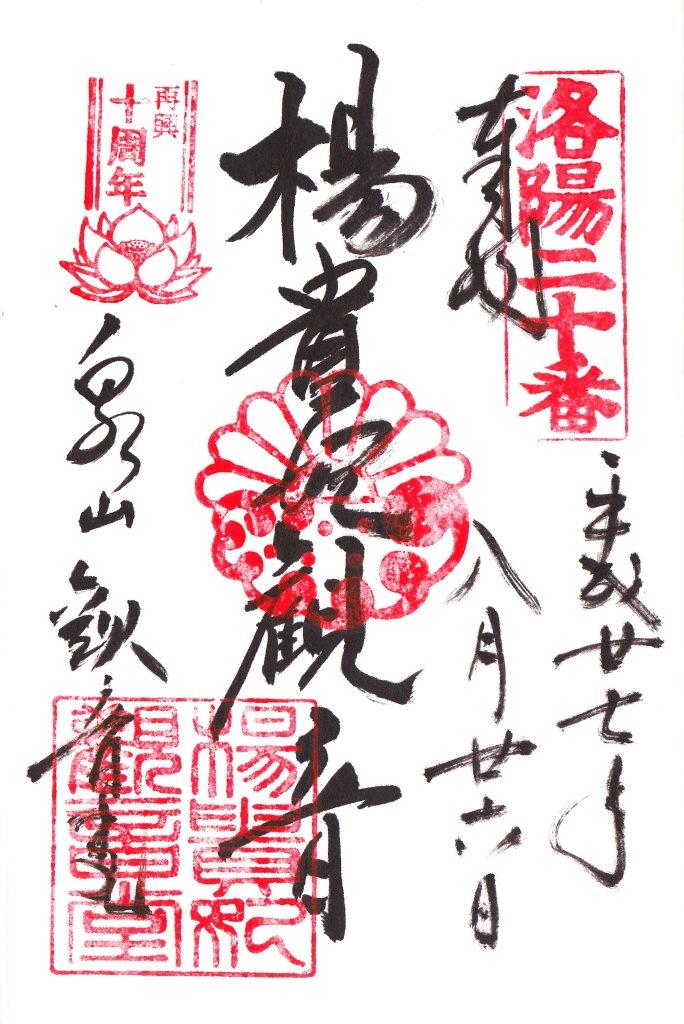 洛陽二十番
奉拝
平成廿七年
八月廿六日
楊貴妃観音
再興
十周年
泉山
観音堂
楊貴妃
観音堂